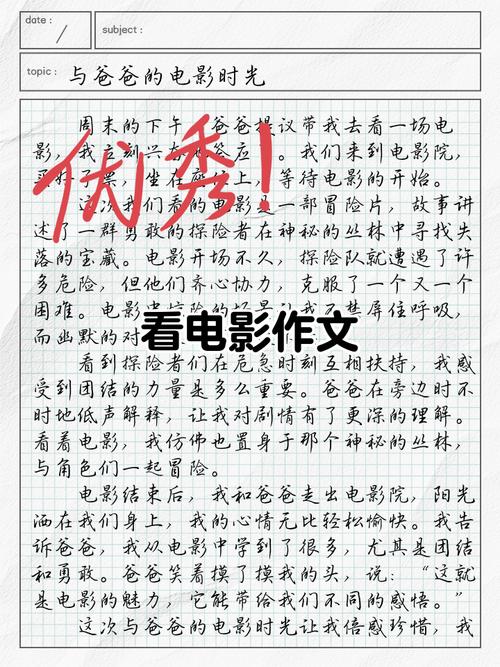 date:
subject:
topic: 与爸爸的电影时光
周末的下午 爸爸提议带我去看一场电
影，我立刻兴奋 答应 。我们来到电影院，
票，坐在座位上，等待电影的开始。
这次我们看的电影是一部冒险片，故事讲
述了一群勇敢的探险者在神秘的丛林中寻找失
落的宝藏。电影开场不久，探险队就遭遇了许
多危险，但他们齐心协力，克服了一个又一个
困难。电影 不禁屏住呼吸，
而幽默的对
看到探险者们在危急时刻互相扶持，我感
受到团结的力量是多么重要。爸爸在旁边时不
时地低声解释，让我对剧情有了更深的理解。
看着电影，我仿佛也置身于那个神秘的丛林，
与角色们一起冒险。
电影结束后，我和爸爸走出电影院，阳光
洒在我们身上，我的心情无比轻松愉快。我告
诉爸爸，我从电影中学到了很多，尤其是团结
和勇敢。爸爸笑着摸了摸我的头，说：“这就
是电影的魅力，它能带给我们不同的感悟。”
这次与爸爸的电影时光让我倍感珍惜，我
优秀！
看电影作文